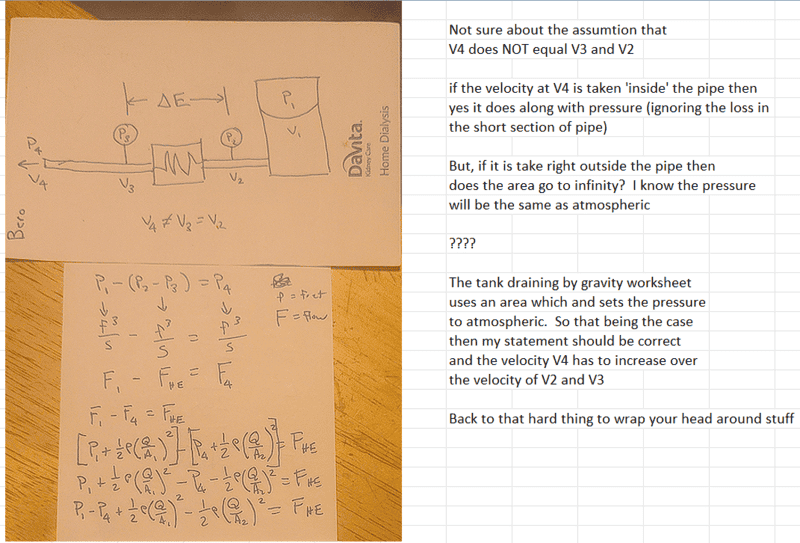 ΔE
P₁
P₃
P₂
P₄
V₁
V₄
V₃
V₂
V₄ ≠ V₃ = V₂
Bero
DaVita.
Kidney Care
Home Dialysis
P₁ - (P₂ - P₃) = P₄
f = feet
F = flow
f³/s - f³/s = f³/s
F₁ - F_HE = F₄
F₁ - F₄ = F_HE
[P₁ + ½ρ(Q/A₁)²] - [P₄ + ½ρ(Q/A₂)²] = F_HE
P₁ + ½ρ(Q/A₁)² - P₄ - ½ρ(Q/A₂)² = F_HE
P₁ - P₄ + ½ρ(Q/A₁)² - ½ρ(Q/A₂)² = F_HE
Not sure about the assumtion that
V4 does NOT equal V3 and V2
if the velocity at V4 is taken 'inside' the pipe then
yes it does along with pressure (ignoring the loss in
the short section of pipe)
But, if it is take right outside the pipe then
does the area go to infinity?  I know the pressure
will be the same as atmospheric
????
The tank draining by gravity worksheet
uses an area which and sets the pressure
to atmospheric.  So that being the case
then my statement should be correct
and the velocity V4 has to increase over
the velocity of V2 and V3
Back to that hard thing to wrap your head around stuff